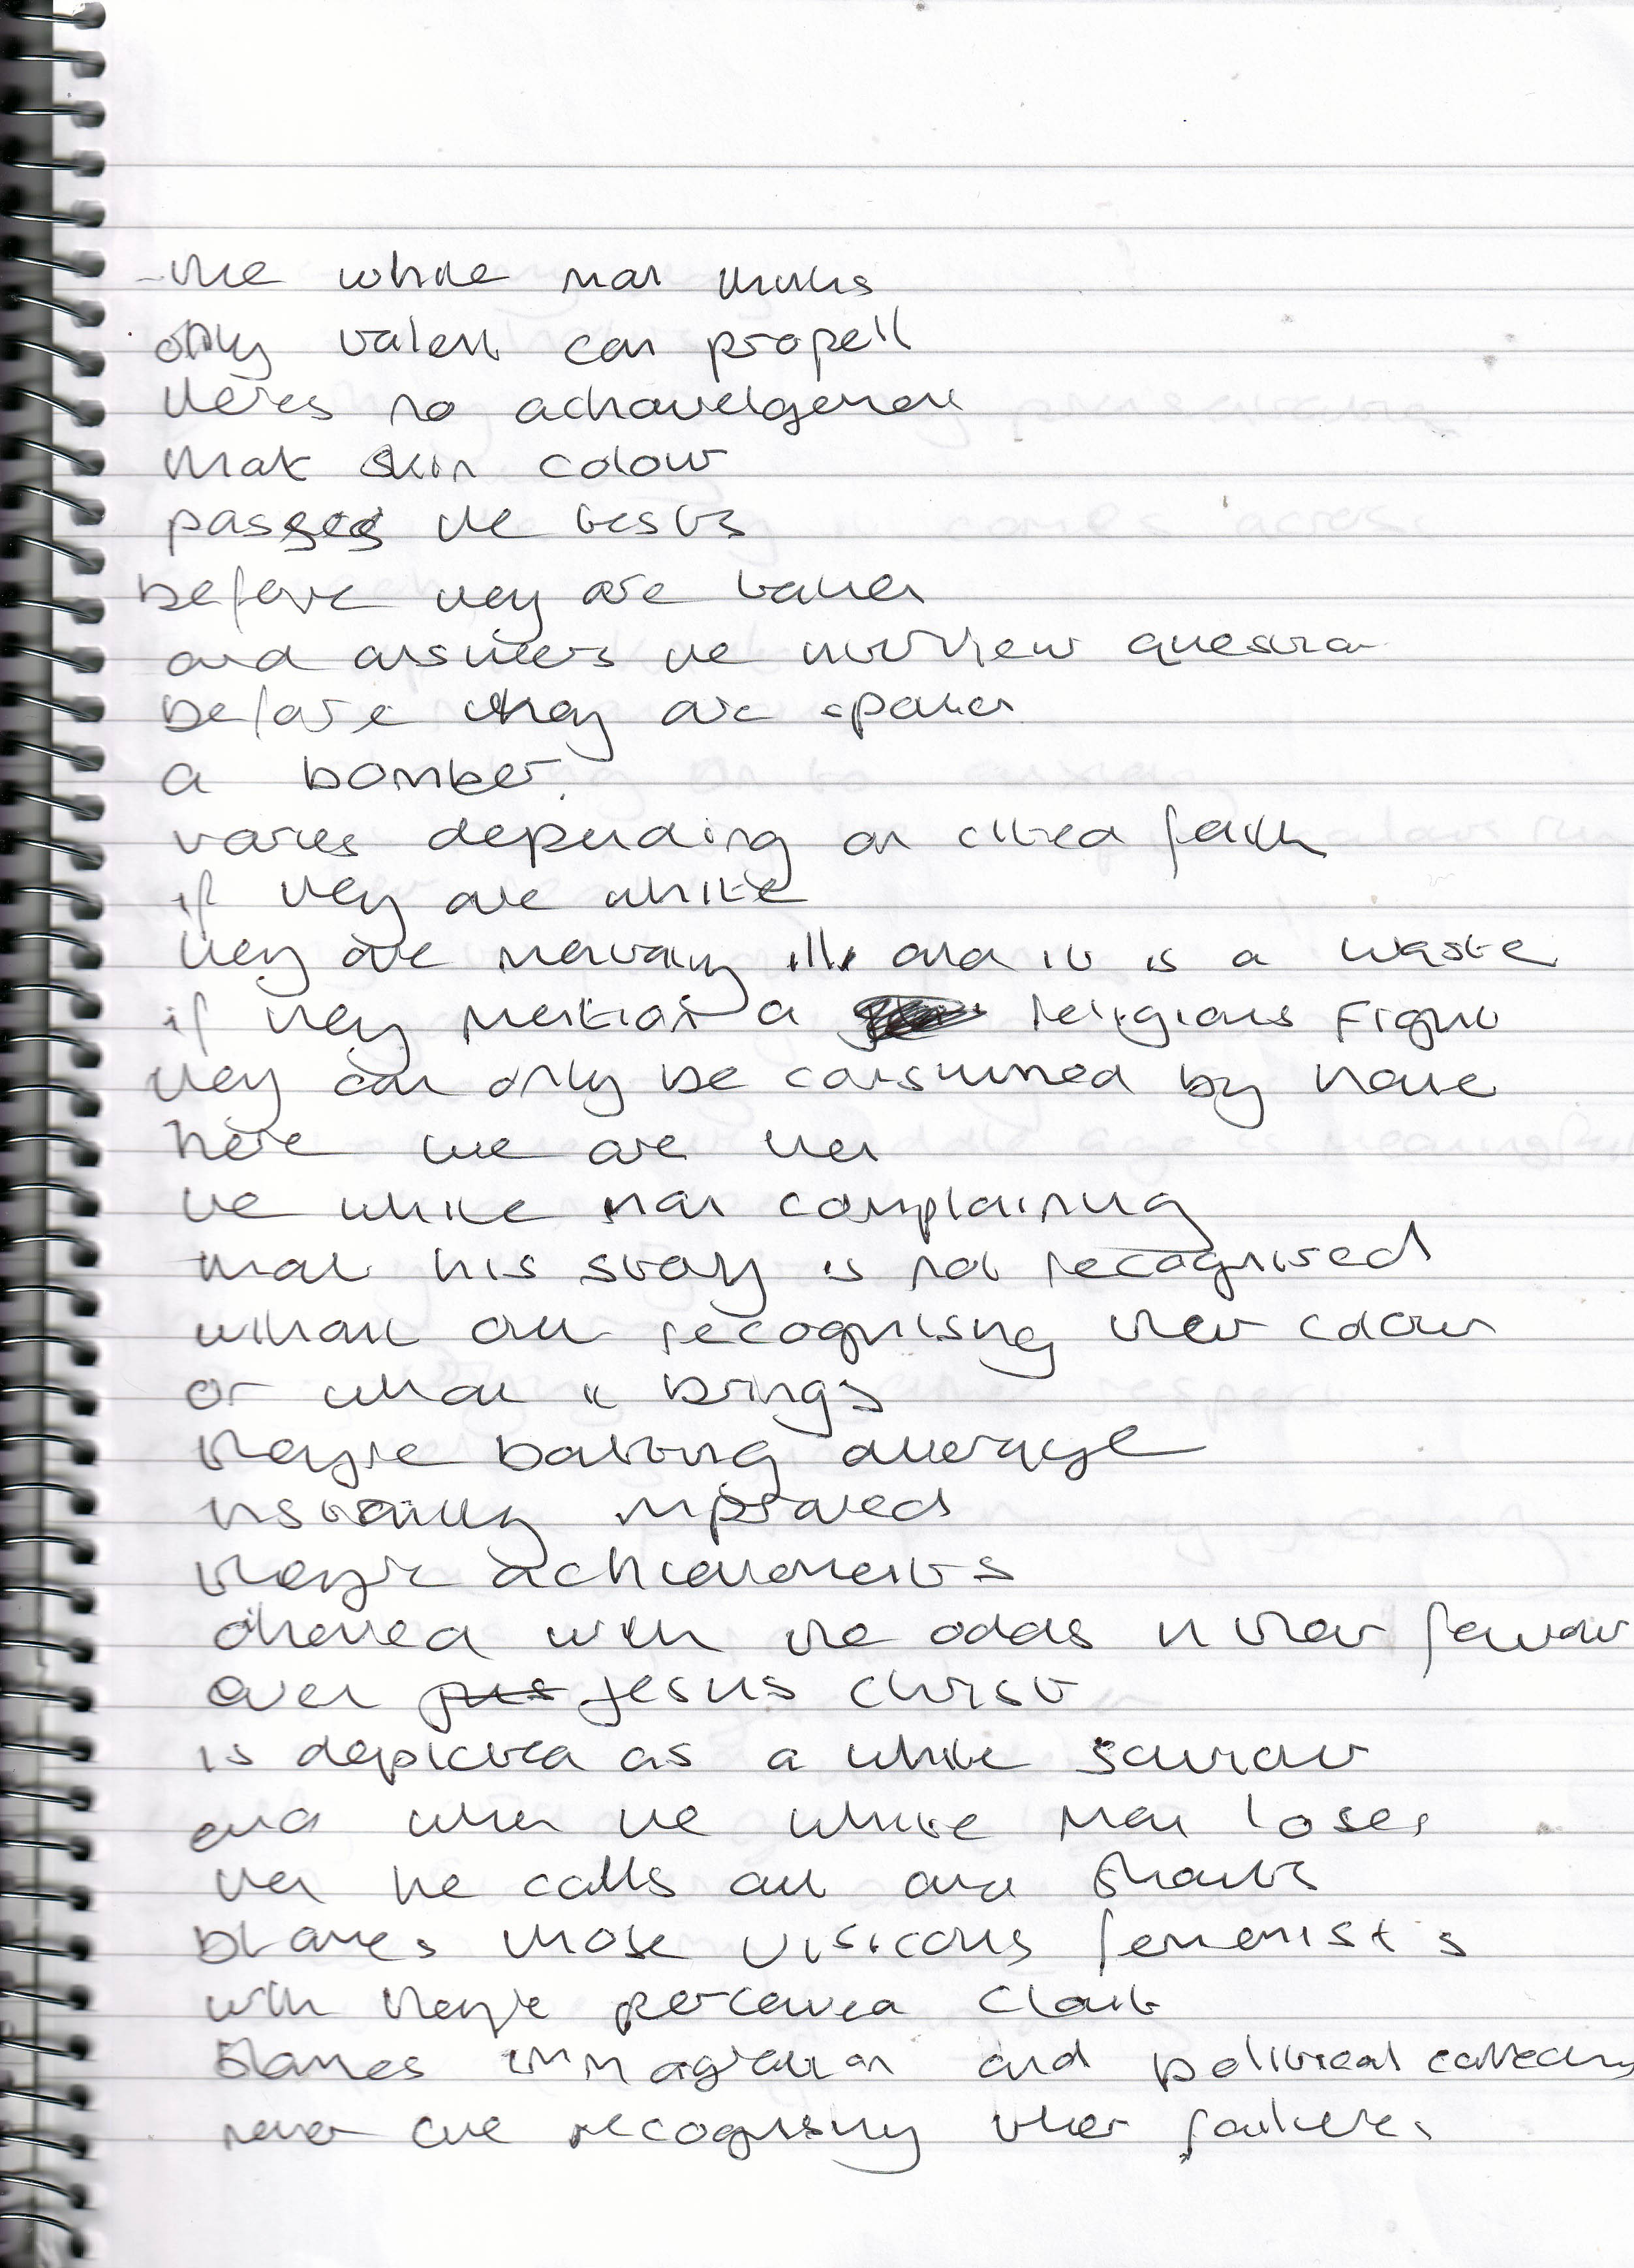 the white man thinks
only talent can propell
theres no acknowelgement
that skin colour
passes the tests
before they are taken
and answers the interview question
before they are spoken
a bomber
varies depending on cited faith
if they are white
they are mentally ill and it is a waste
if they mention a religious fight
they can only be consumed by hate
here we are then
the white man complaining
that his story is not recognised
without ever recognising their colour
or what it brings
theyre batting average
instantly improved
theyre achievements
achieved with the odds in their favour
even jesus christ
is depicted as a white saviour
and when the white man loses
then he calls out and shouts
blames those visicous femenists
with theyre perceived clout
blames immagration and political correctness
never once recognising their failures